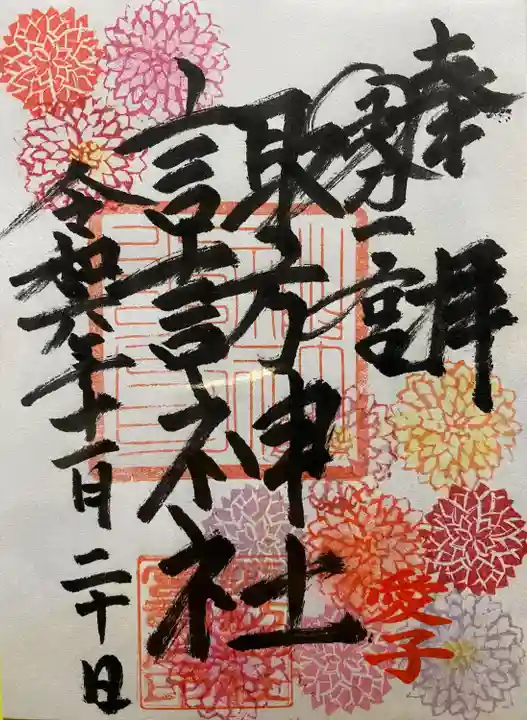 奉拝
諏訪神社
令和六年十一月二十日
愛子